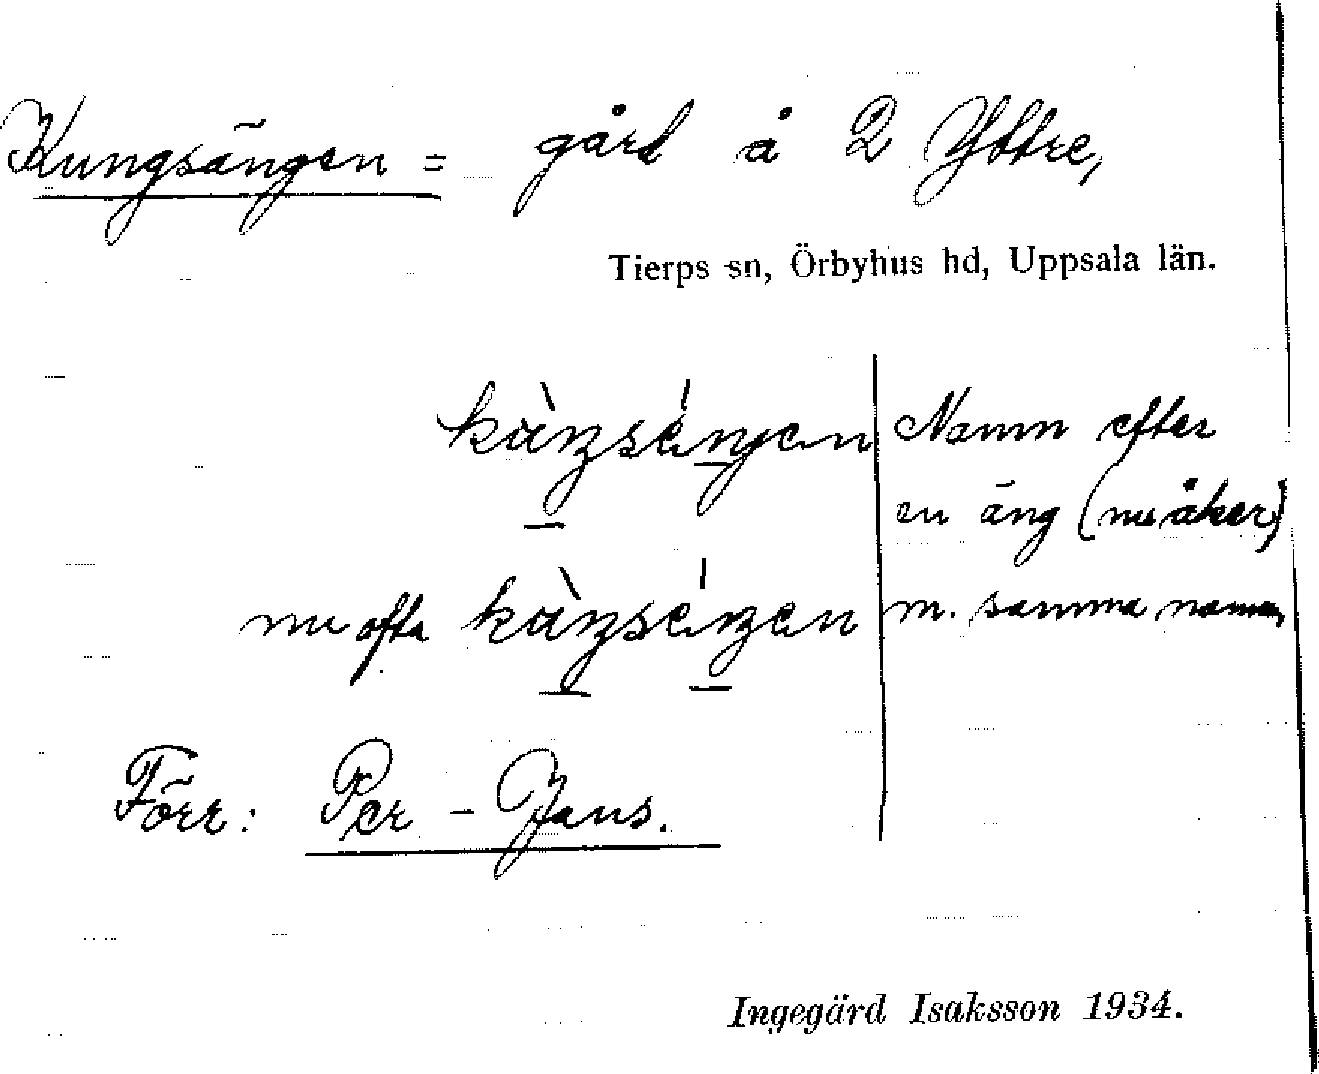 Kungsängen = gård å 2 Yttre,
Tierps sn, Örbyhus hd, Uppsala län.
Namn efter
en äng (nu åker)
m. samma namn
nu ofta
Förr: Per - Jans.
Ingegärd Isaksson 1934.